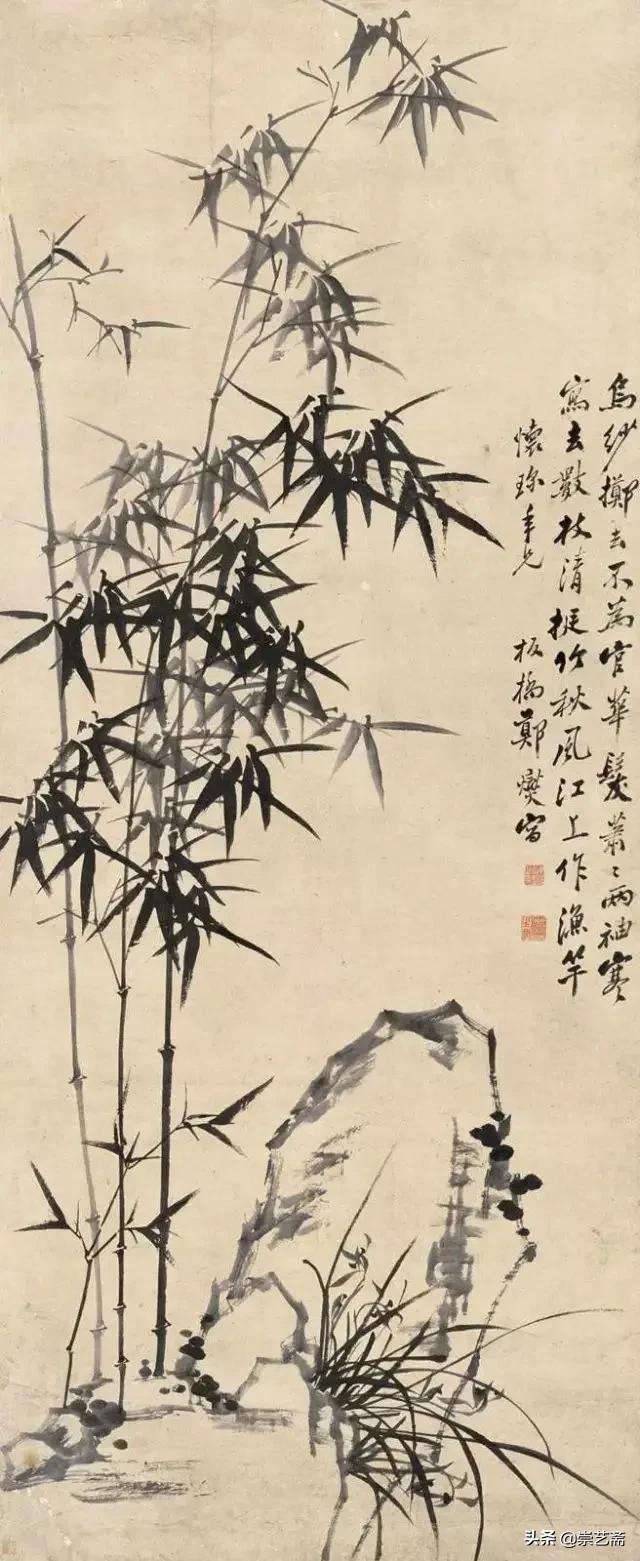 烏紗擲去不為官華髮蕭〻兩袖寒
寫去數枝清挺竹秋風江上作漁竿
懷珍年兄
板橋鄭燮寫
头条 @崇艺斋